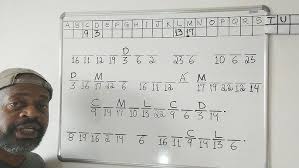 A B C D E F G H I J K L M N O P Q R S T U
9 3 13 17
D
16 11 12 19 3 6 2 23 6 10 6 25
D M A M
3 16 17 22 6 16 11 12 17 19 22 12 14
C M L C D
9 14 17 10 13 22 9 6 3 14 .
C L
8 19 16 2 14 6 16 11 9 14 13 6 .